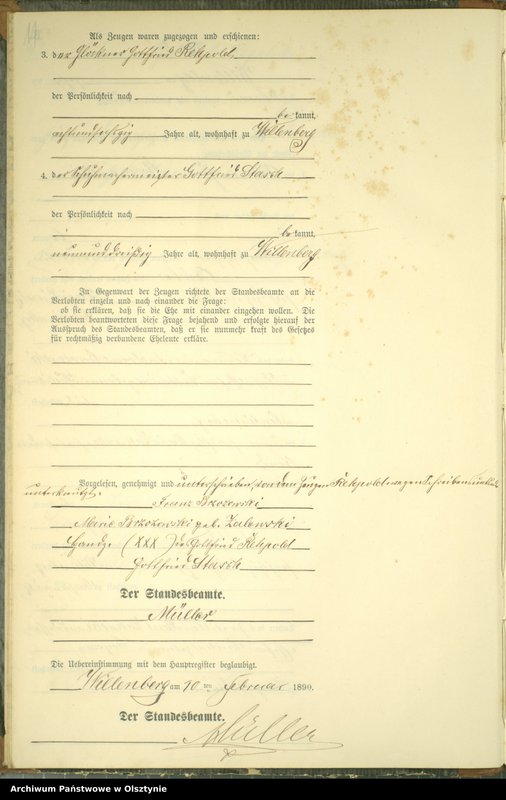 Als Zeugen waren zugezogen und erschienen:
3. der Glöckner Gottfried Rekpold
der Persönlichkeit nach
be kannt,
achtundsechzig Jahre alt, wohnhaft zu Willenberg
4. der Schuhmachermeister Gottfried Stasch
der Persönlichkeit nach
be kannt,
neununddreißig Jahre alt, wohnhaft zu Willenberg
In Gegenwart der Zeugen richtete der Standesbeamte an die
Verlobten einzeln und nach einander die Frage:
ob sie erklären, daß sie die Ehe mit einander eingehen wollen. Die
Verlobten beantworteten diese Frage bejahend und erfolgte hierauf der
Ausspruch des Standesbeamten, daß er sie nunmehr kraft des Gesetzes
für rechtmäßig verbundene Eheleute erkläre.
Vorgelesen, genehmigt und unterschrieben, von dem Zeugen Rekpold wegen Schreibens
unterkreuzt.
Franz Brzozowski
Marie Brzozowski geb. Zalewski
Handz. (XXX) des Gottfried Rekpold
Gottfried Stasch
Der Standesbeamte.
Müller
Die Uebereinstimmung mit dem Hauptregister beglaubigt.
Willenberg am 10 ten Februar 1890.
Der Standesbeamte.
Müller
Archiwum Państwowe w Olsztynie